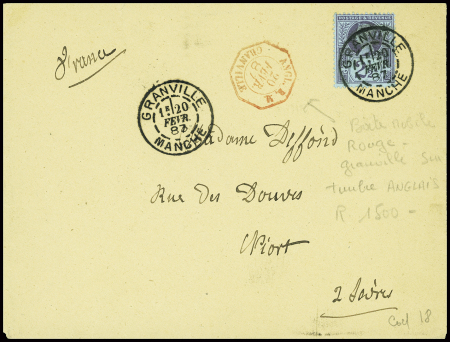 France
POSTAGE & REVENUE
GRANVILLE
1E 20
FEVR.
87
MANCHE
ANGL. B. M.
20
FEVR.
GRANVILLE
GRANVILLE
1E 20
FEVR.
87
MANCHE
Madame Deffond
Rue des Douves
Niort
2 Sèvres
Boîte Mobile
Rouge -
granville sur
timbre ANGLAIS
R 1500 -
Coef 18